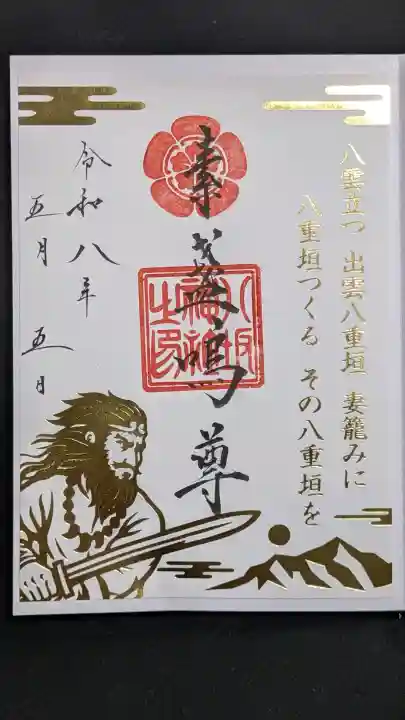 八雲立つ 出雲八重垣 妻籠みに
八重垣つくる その八重垣を
素盞嗚尊
八坂神社之印
令和八年
五月五日